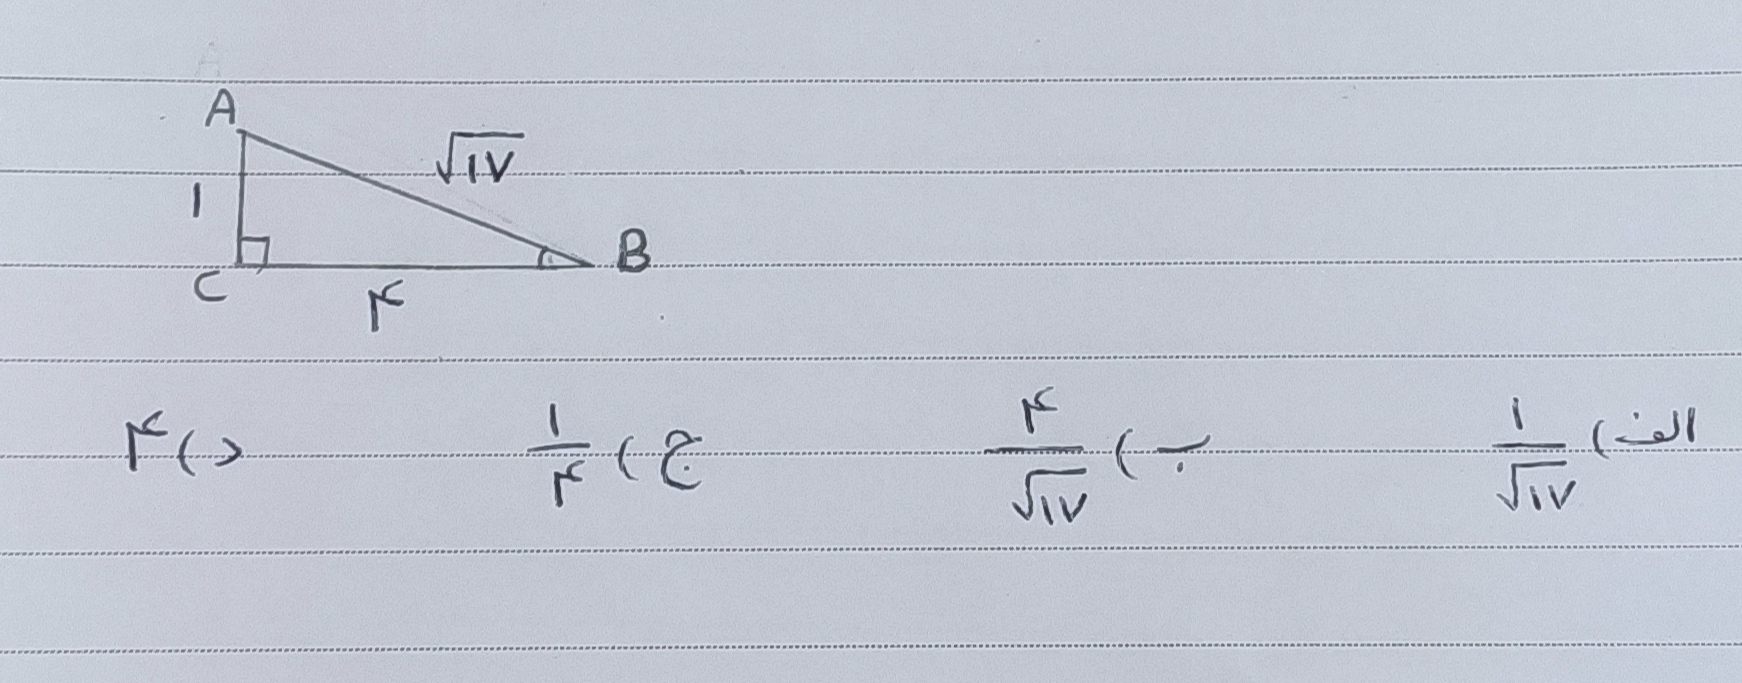 A
√۱۷
۱
B
C
۴
الف) ۱/√۱۷ ب) ۴/√۱۷ ج) ۱/۴ د) ۴